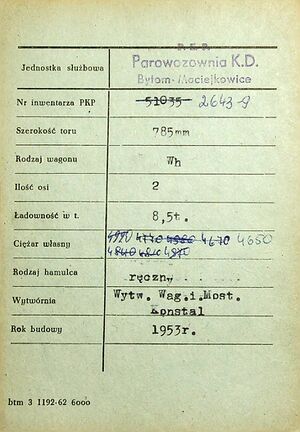 P.K.P.
Jednostka służbowa Parowozownia K.D.
Bytom-Maciejkowice
Nr inwentarza PKP 51035 2643-9
Szerokość toru 785mm
Rodzaj wagonu Wh
Ilość osi 2
Ładowność w t. 8,5t.
Ciężar własny 4670 4650
Rodzaj hamulca ręczny
Wytwórnia Wytw. Wag.i.Most.
Konstal
Rok budowy 1953r.
btm 3 1192-62 6000